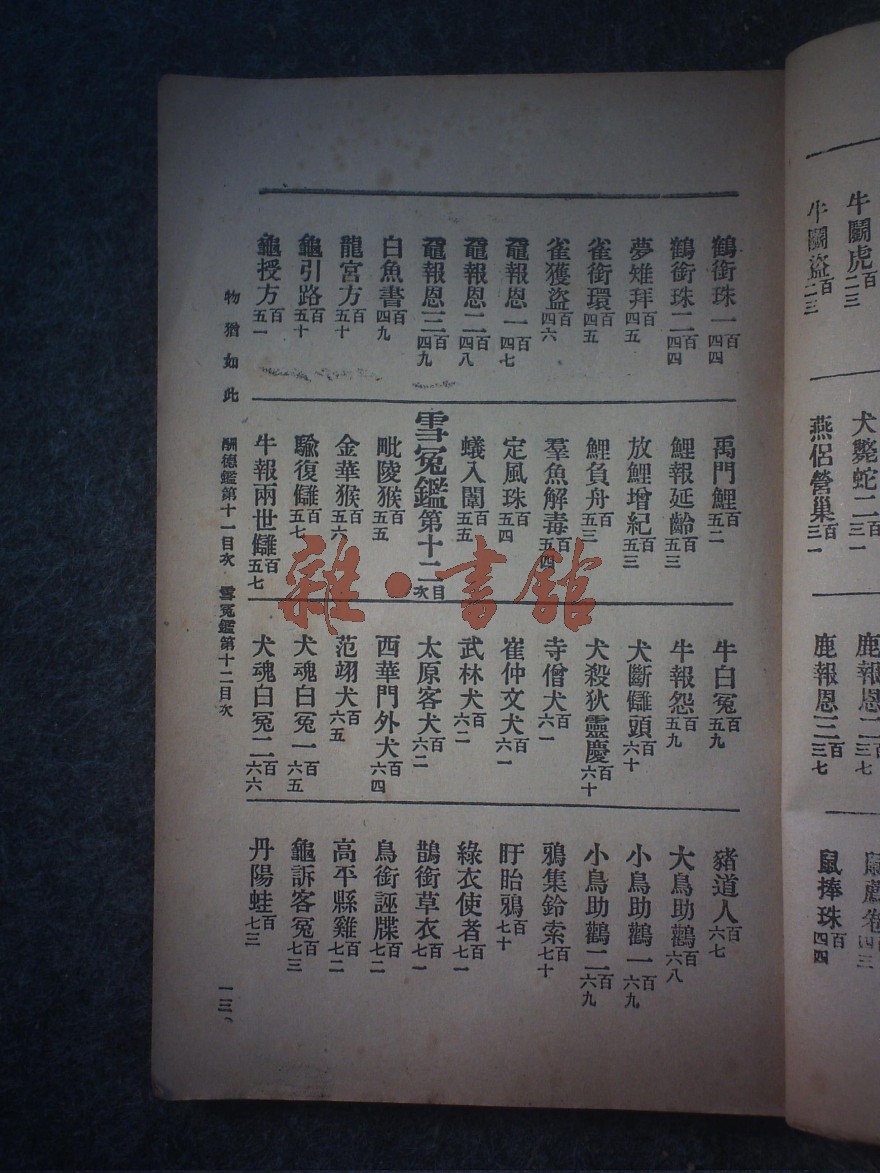 鶴銜珠一百四四
鶴銜珠二百四四
夢雉拜百四五
雀銜環百四五
雀獲盜百四六
黿報恩一百四七
黿報恩二百四八
黿報恩三百四九
白魚書百四九
龍宮方百五十
龜引路百五十
龜授方百五一
禹門鯉百五二
鯉報延齡百五三
放鯉增紀百五三
鯉負舟百五三
羣魚解毒百五四
定風珠百五四
蟻入闈百五五
雪冤鑑第十二目次
毗陵猴百五五
金華猴百五六
騟復讎百五七
牛報兩世讎百五七
牛白冤百五九
牛報怨百五九
犬斷讎頭百六十
犬殺狄靈慶百六十
寺僧犬百六一
崔仲文犬百六一
武林犬百六二
太原客犬百六二
西華門外犬百六四
范翊犬百六五
犬魂白冤一百六五
犬魂白冤二百六六
豬道人百六七
大鳥助鸛百六八
小鳥助鸛一百六九
小鳥助鸛二百六九
鴉集鈴索百七十
盱眙鴉百七十
綠衣使者百七一
鵲銜草衣百七一
鳥銜誣牒百七二
高平縣雞百七二
龜訴客冤百七三
丹陽蛙百七三
物猶如此 酬德鑑第十一目次 雪冤鑑第十二目次 一三
牛鬭虎百二三
牛鬭盜百二三
犬斃蛇二百三一
燕侶營巢百三一
鹿報恩二百三七
鹿報恩三百三七
鼠捧珠百四四
雜·書館